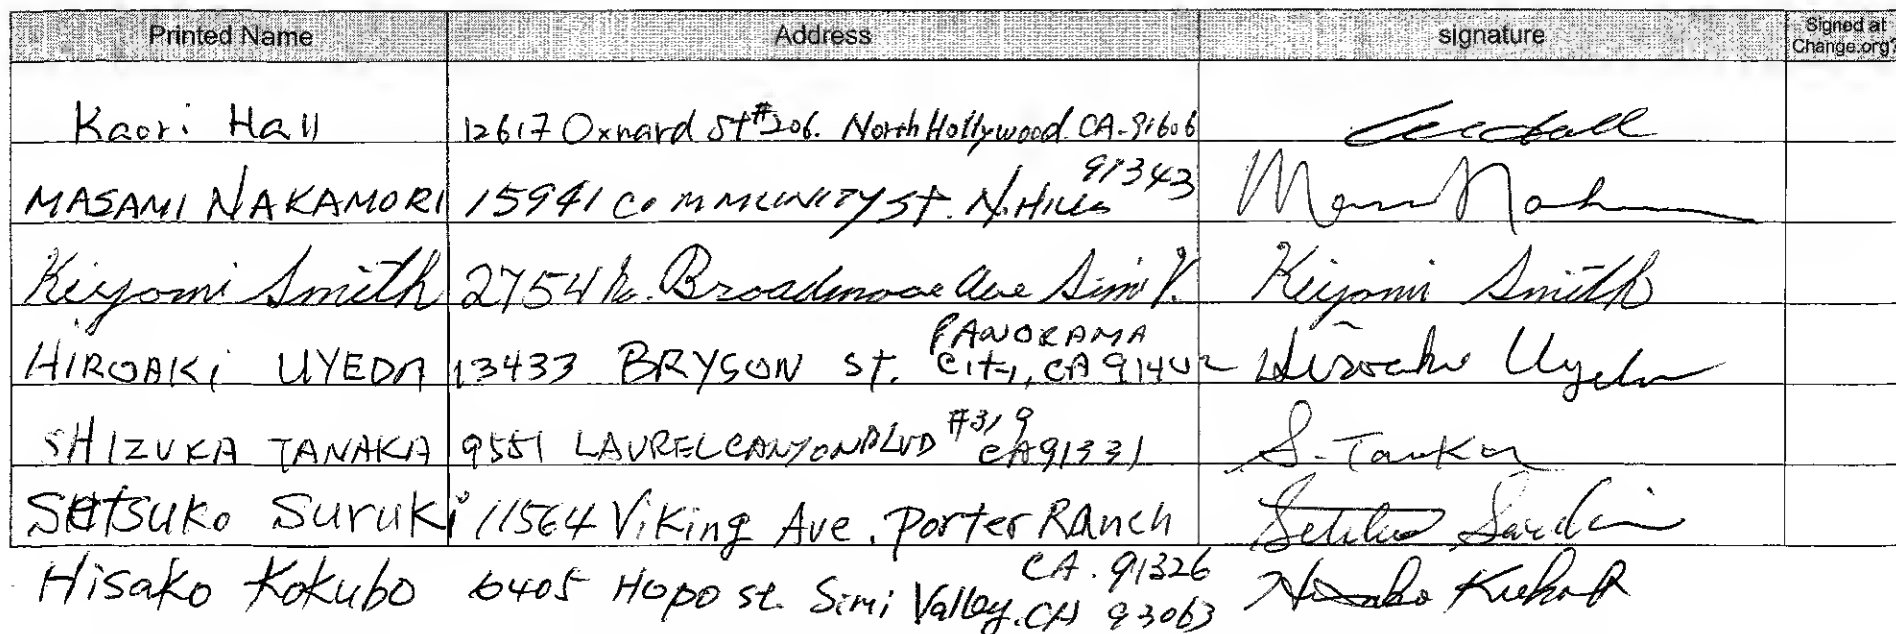 Printed Name Address signature Signed at Change.org?
Kaori Hall 12617 Oxnard St #206. North Hollywood CA-91606
MASAMI NAKAMORI 15941 COMMUNITY ST. N. Hills 91343
Kiyomi Smith 2754 Broadmoor Ave Simi V. Kiyomi Smith
HIROAKi UYEDA 13433 BRYSON St. PANORAMA City, CA 91402 Hiroaki Uyeda
SHIZUKA TANAKA 9551 LAUREL CANYON BLVD #319 CA 91331 S. Tanaka
Setsuko Suruki 11564 Viking Ave. Porter Ranch CA. 91326
Hisako Kokubo 6405 Hopo st. Simi Valley. CA 93063